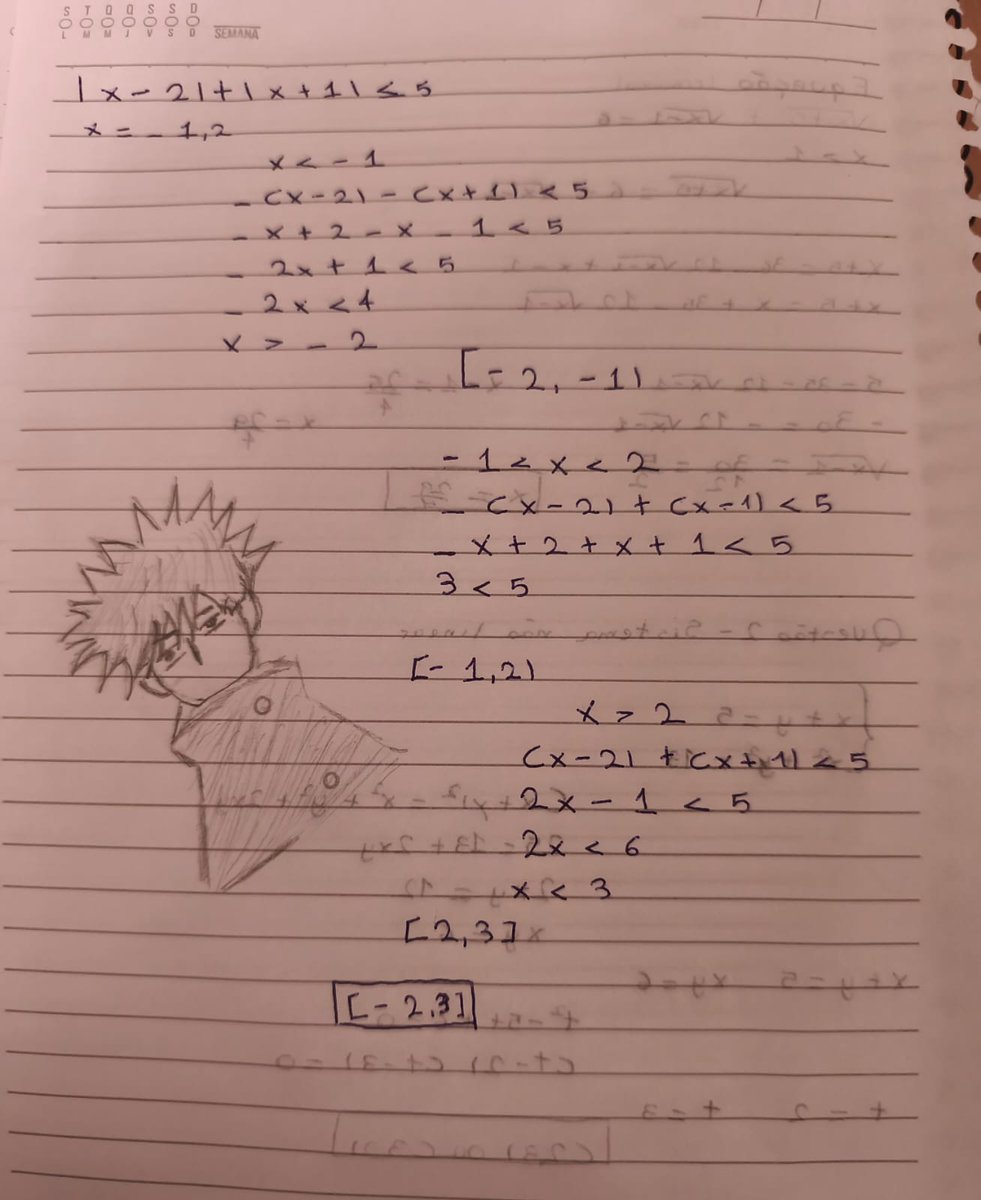 S T Q Q S S D
L M M J V S D SEMANA
|x - 2| + |x + 1| ≤ 5
x = - 1,2
x < - 1
- (x - 2) - (x + 1) < 5
- x + 2 - x - 1 < 5
- 2x + 1 < 5
- 2x < 4
x > - 2
[- 2, -1)
- 1 < x < 2
- (x - 2) + (x - 1) < 5
- x + 2 + x + 1 < 5
3 < 5
[- 1,2)
x > 2
(x - 2) + (x + 1) < 5
2x - 1 < 5
2x < 6
x < 3
[2,3]
[- 2,3]